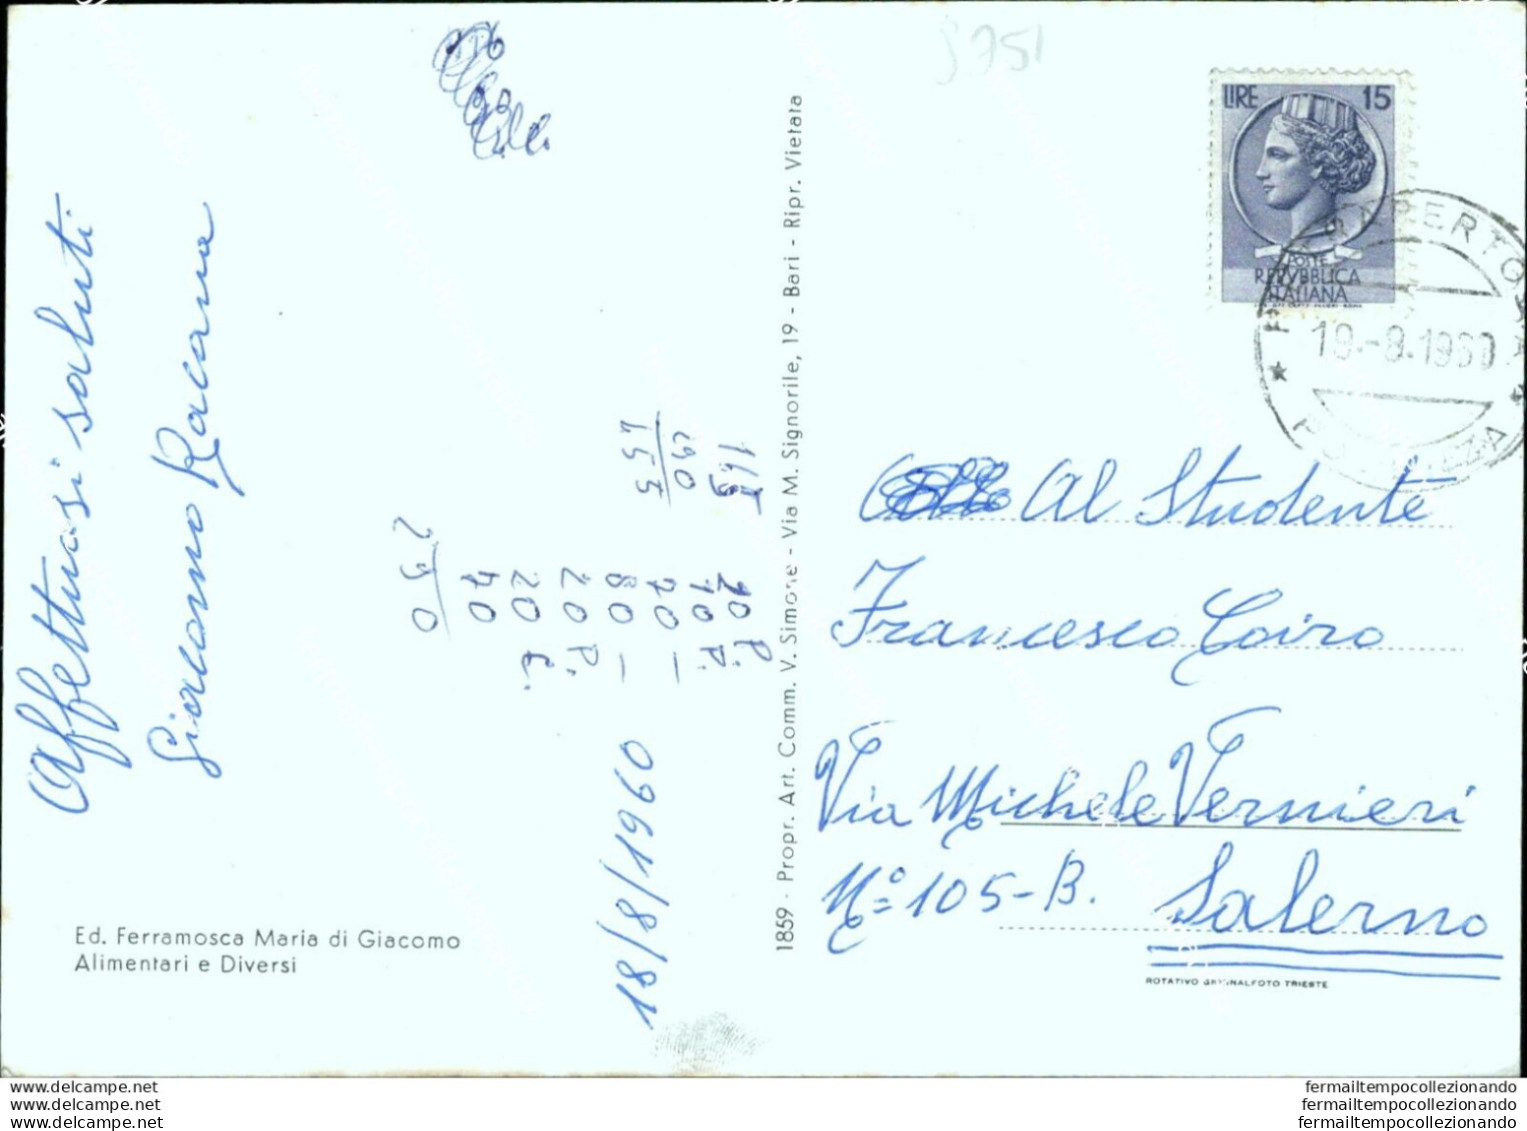 Affettuosi saluti
Giacomo Racana
18/8/1960
Ed. Ferramosca Maria di Giacomo
Alimentari e Diversi
1859 - Propr. Art. Comm. V. Simone - Via M. Signorile, 19 - Bari - Ripr. Vietata
LIRE 15
POSTE
REPVBBLICA
ITALIANA
Al Studente
Francesco Coiro
Via Michele Vernieri
N.° 105-B. Salerno
ROTATIVO ORIGINALFOTO TRIESTE
165
190
20 P.
10 P.
70 —
80 —
20 P.
20 £.
70
290
www.delcampe.net
www.delcampe.net
www.delcampe.net
fermailtempocollezionando
fermailtempocollezionando
fermailtempocollezionando